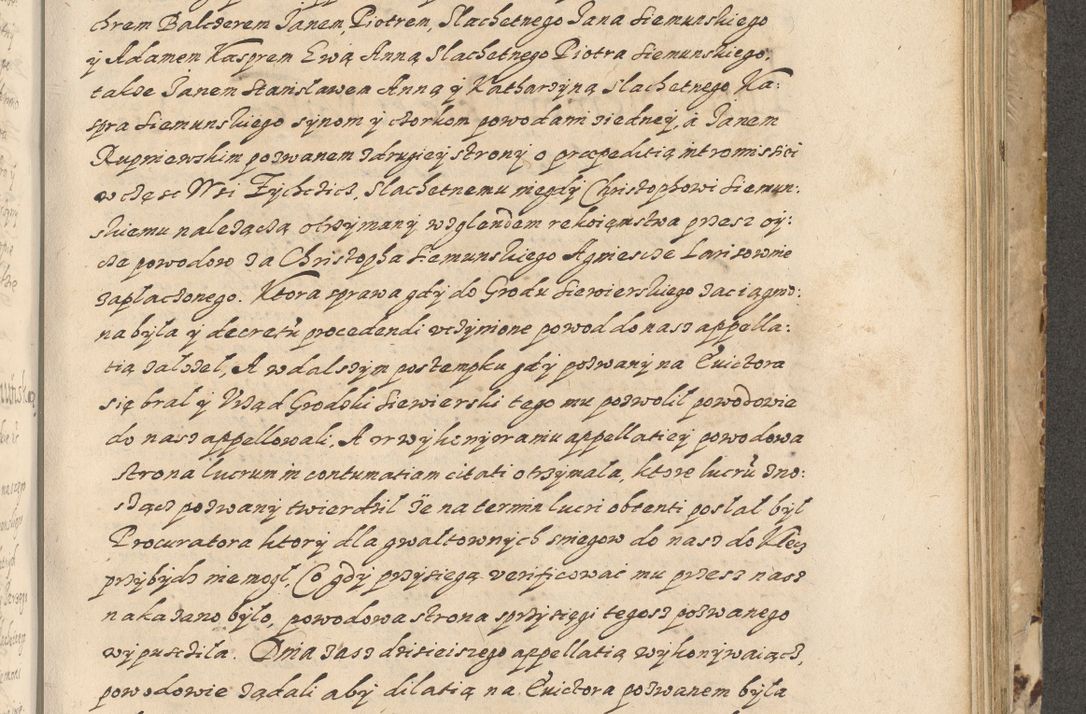 chrem Balcerem Janem, Piotrem, Slachetnego Jana Siemunskiego
ÿ Adamen Kasprem Ewą Anną Slachetnego Piotra Siemunskiego,
takze Janem Stanislawem Anną ÿ Katharzÿną Slachetnego Ka-
spra Siemunskiego sÿnom ÿ czorkom powodami ziedneÿ, à Janem
Rupniewskim pozwanem zdrugieÿ stronÿ o præpeditią intromissiei
w częsc Wsi Zÿchczicz, Slachetnemu niegdÿ Christophowi Siemun:
skiemu należączą otrzÿmanÿ wzglendem rekoięmstwa przesz oÿ:
cze powodow za Christopha Siemunskiego Agniescze Larisownie
zaplaczonego. Ktora sprawa gdÿ do Grodu Siewierskiego zaciągnio:
na bÿla ÿ decretū procedendi uczÿnione powod do nasz appella:
tią zalozel, A w dalszÿm postempku gdÿ pozwanÿ na Evictora
się bral ÿ Urząd Grodski Siewierski tego mu pozwolil powodowie
do nasz appellowali. A w wÿkonÿwaniu appellatieÿ powodowa
strona lucrum in contumatiam citati otrzÿmala, ktore lucrū zno:
sząćz pozwanÿ twierdzil że na termin lucri obtenti poslal bÿl
Procuratora ktorÿ dla gwaltownÿch sniegow do nasz do Klecz
przÿbÿdz nie mogl, Co gdÿ przÿsiegą verificowac mu przesz nasz
nakazano bÿlo, powodowa strona sprzÿsięgi tegosz pozwanego
wÿpusczila. Dnia zasz dzisieiszego appellatią wÿkonÿwaiącz,
powodowie ządali abÿ dilatią na Evictora pozwanem bÿla